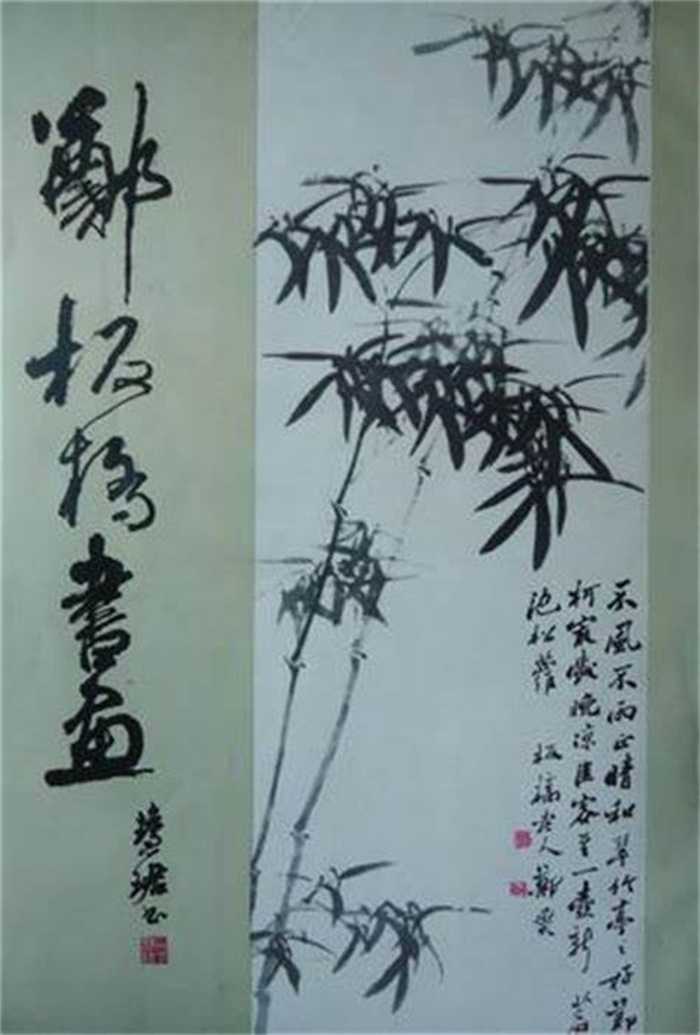 鄭板橋書畫
不風不雨正晴和翠竹亭〻好節
柯最愛晚涼佳客至一壺新茗
泡松蘿
板橋老人鄭燮